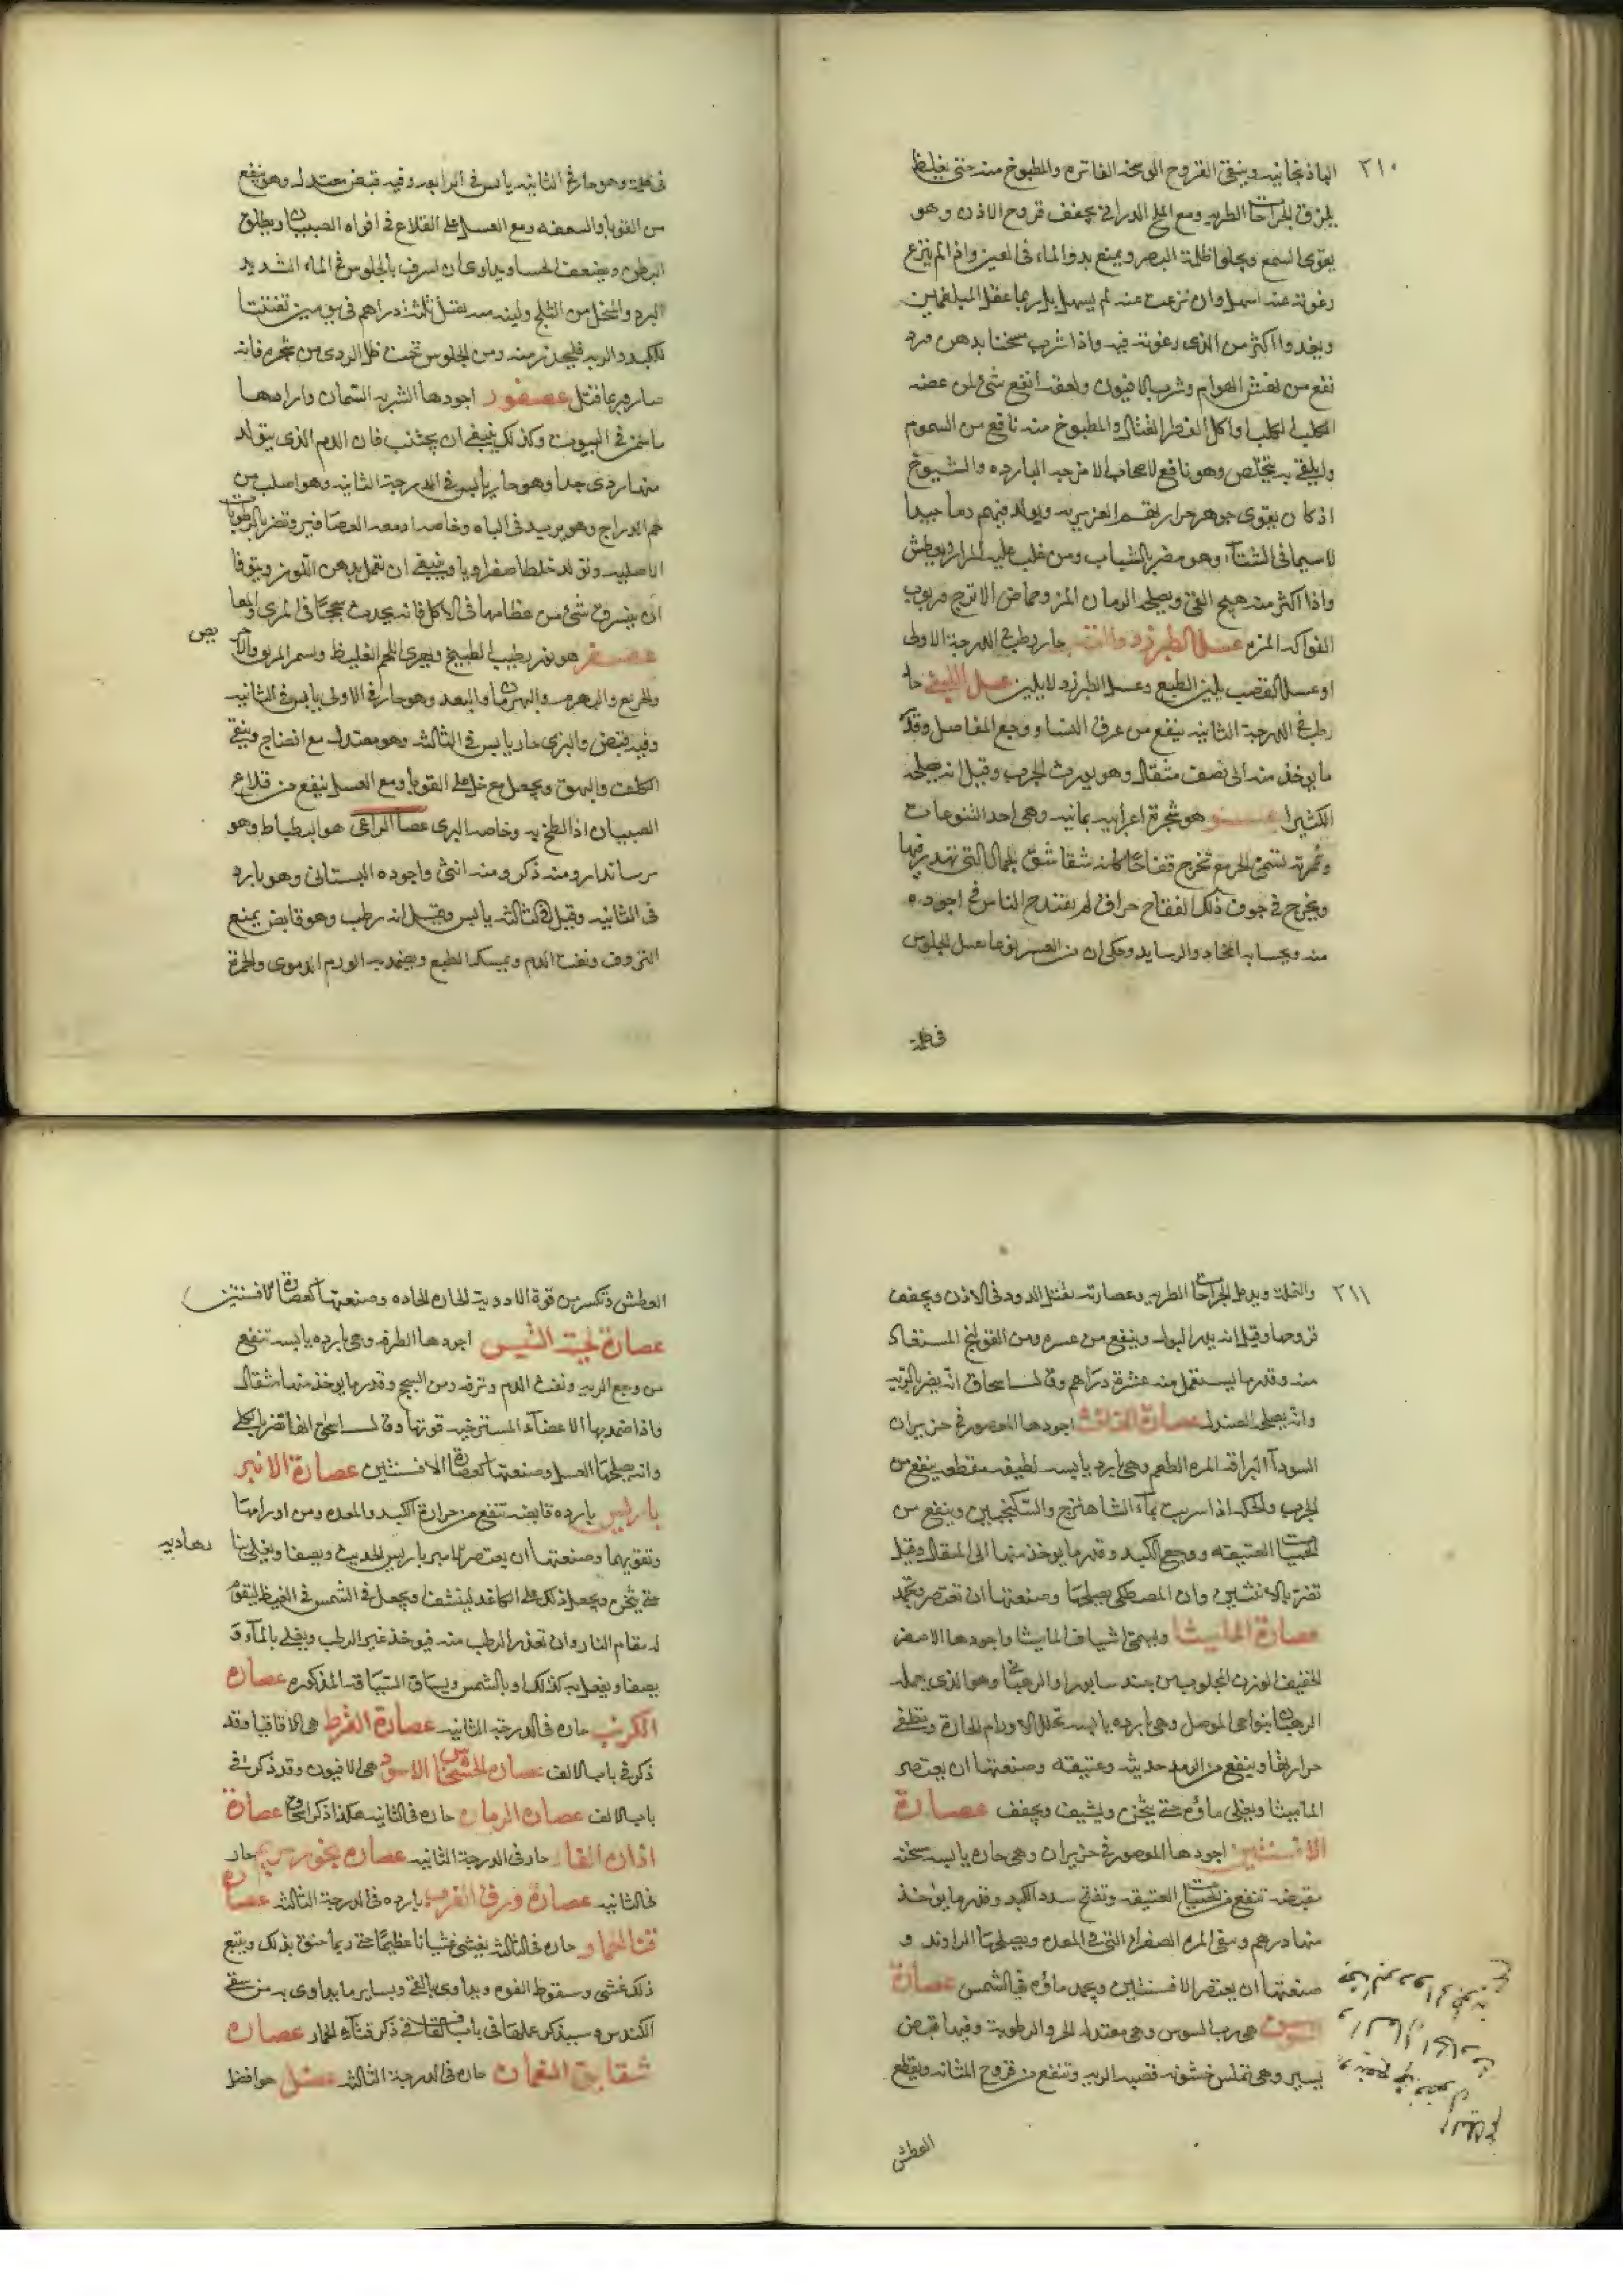 ٢١٠
الباذنجانيه وينقى القروح الوسخه الغائره والمطبوخ منه حتى يغلظ
يلزق الجراحات الطريه ومع الملح الدرانى يجفف قروح الاذن وهو
يقوى السمع ويجلوا ظلمة البصر ويمنع بدو الماء فى العين واذا لم ينزع
رغوته عنه اسهل وان نزعت عنه لم يسهل بل ربما عقل المبلغمين
ويغدوا اكثر من الذى رغوته فيه واذا شرب سخنا بدهن ورد
نفع من نهش الهوام وشرب الافيون ولعقه انفع شئ لمن عضه
الكلب الكلب او اكل الفطر القتال والمطبوخ منه نافع من السموم
وليلقى به يتخلص وهو نافع لاصحاب الامزجه البارده والشيوخ
اذ كان يقوى جوهر حرارتهم الغزيريه ويولد فيهم دما جيدا
لاسيما فى الشتاء وهو مضر بالشباب ومن غلب عليه المرار ويعطش
واذا اكثر منه هيج القئ ويصلحه الرمان المز وحماض الاترج وربوب
الفواكه المزه عسل الطبرزد والقند حار رطب فى الدرجة الاولى
او عسل القصب يلين الطبع وعسل الطبرزد لا يلين عسل اللبنى حار
رطب فى الدرجة الثانيه ينفع من عرق النسا ووجع المفاصل وقدر
ما يوخذ منه الى نصف مثقال وهو يورث الجرب وقيل انه يصلحه
الكثيرا عشر هو شجرة اعرابيه يمانيه وهى احد اليتوعات
وثمرته تسمى الخرفع تخرج قفاحا كانه شقاشق الجمال التى تهدر فيها
ويخرج فى جوف ذلك الفقاح حراق لم يقتدح الناس فى اجود
منه ويحشا به المخاد والوسايد وحكى ان من العشر نوعا يقتل الجلوس
فى ظلمة
فى ظلمة وهو حار فى الثانيه يابس فى الرابعه وفيه قبض معتدل وهو ينفع
من القوبا والسعفه ومع العسل على القلاع فى افواه الصبيان ويطلق
البطن ويضعف الاحشا ويداوى ان اسرف بالجلوس فى الماء الشديد
البرد والخل من الثلج ولبنه منه يقتل ثلثة دراهم فى يومين تفتتا
للكبد والريه فليحذر منه ومن الجلوس تحت ظل الردى من شجره فانه
ضار وربما قتل عصفور اجودها الشتويه السمان واردأها
ما سمن فى البيوت وكذلك ينبغى ان يجتنب فان الدم الذى يتولد
منها ردى جدا وهو حار يابس فى الدرجة الثانيه وهو اصلب من
لحم الدراج وهو يزيد فى الباه وخاصه ادمغه العصافير وتضر بالرطوبات
الاصليه وتولد خلطا صفراويا وينبغى ان تعمل بدهن اللوز ويتوقا
ان يسرق شئ من عظامها فى الاكل فانه يحدث سحجا فى المرى والمعا
عصفر هو بزر يطيب الطبيخ ويهرى اللحم الغليظ ويسمى المريق والاحريص
والخريع والبهرم والبهرمان والبعد وهو حار فى الاولى يابس فى الثانيه
وفيه قبض والبرى حار يابس فى الثالثه وهو معتدل مع انضاج وينقى
الكلف والبهق ويجعل مع خل على القوبا ومع العسل ينفع من قلاع
الصبيان اذا لطخ به وخاصه البرى عصا الراعى هو البطباط وهو
برساندارو منه ذكر ومنه انثى واجوده البستانى وهو بارد
فى الثانيه وقيل فى الثالثه يابس وقيل انه رطب وهو قابض يمنع
النزوف ونفث الدم ويمسك الطبع ويضمد به الورم الدموى والحمرة
٢١١
والنمله ويدمل الجراحات الطريه وعصارته تقتل الدود فى الاذن ويجفف
قروحها وقيل انه يدر البول وينفع من عسره ومن القولنج المستعاذ
منه وقدر ما يستعمل منه عشرة دراهم وقال اسحاق انه يضر بالريه
وانه يصلحه الصندل عصارة الغافث اجودها المعصور فى حزيران
السودا البراقه المره الطعم وهى بارده يابسه لطيفه مقطعه ينفع من
الجرب والحكه اذا شربت بماء الشاهترج والسكنجبين وينفع من
الحميات العتيقه ووجع الكبد وقدر ما يوخذ منها الى المثقال وقيل
تضر بالانثيين وان المصطكى يصلحها وصنعتها ان تعتصر وتجمد
عصارة الماميثا ويسمى اشياف الماميثا واجودها الاصفر
الخفيف الوزن المجلوب من جند سابور او الرهبانى وهو الذى يعمله
الرهبان بنواحى الموصل وهى بارده يابسه تحلل الاورام الحارة وتطفى
حرارتها وينفع من الرمد حديثه وعتيقه وصنعتها ان يعتصر
الماميثا ويغلى ماؤه حتى يثخن ويشيف ويجفف عصارة
الافسنتين اجودها المعصور فى حزيران وهى حاره يابسه سخنه
مقبضه تنفع من الحميات العتيقه وتفتح سدد الكبد وقدر ما يوخذ
منها درهم وتنقى المره الصفراء التى فى المعده ويصلحها الراوند و
صنعتها ان يعتصر الافسنتين ويجمد ماؤه فى الشمس عصارة
السوس هى رب السوس وهى معتدله الحر والرطوبة وفيها قبض
يسير وهى تملس خشونه قصبه الريه وتنفع من قروح المثانه ويقطع
العطش
العطش وتكسر من قوة الادوية الحاره الحاده وصنعتها كعصارة الافسنتين
عصارة لحية التيس اجودها الطريه وهى بارده يابسه تنفع
من وجع الريه ونفث الدم ونزفه ومن السحج وقدر ما يوخذ منها مثقال
واذا ضمد بها الاعضاء المسترخيه قوتها وقال اسحاق انها تضر بالكلى
وانه يصلحها العسل وصنعتها كعصارة الافسنتين عصارة الانبر
باريس بارده قابضه تنفع من حرارة الكبد والمعده ومن اورامها
وتقويهما وصنعتها ان يعتصر الامبرباريس الحديث ويصفا ويغلى بنار هاديه
حتى يثخن ويجعل ذلك على الكاغد لينشف ويجعل فى الشمس فى القيظ ليقوم
له مقام النار وان تعذر الرطب منه فيوخذ غير الرطب ويغلى بالماء و
يصفا ويفعل به كذلك او بالشمس ويساق السياقه المذكوره عصارة
الكرنب حاره فى الدرجة الثانيه عصارة القرط هى الاقاقيا وقد
ذكر فى باب الالف عصارة الخشخاش الاسود هى الافيون وقد ذكر فى
باب الالف عصارة الرمان حاره فى الثانيه هكذا ذكر عصارة
اذان الفار حار فى الدرجة الثانيه عصارة بخور مريم حار
فى الثانيه عصارة ورق الغرب بارده فى الدرجة الثالثه عصارة
قثا الحمار حاره فى الثالثه يغشى غشيانا عظيما حتى ربما خنق بذلك ويتبع
ذلك غشى وسقوط القوه ويداوى بالقئ وبساير ما يداوى به من سقى
الكندس وسيذكر عملها فى باب القاف فى ذكر قثاء الحمار عصارة
شقايق النعمان حاره فى الدرجة الثالثه عضل هو افضل